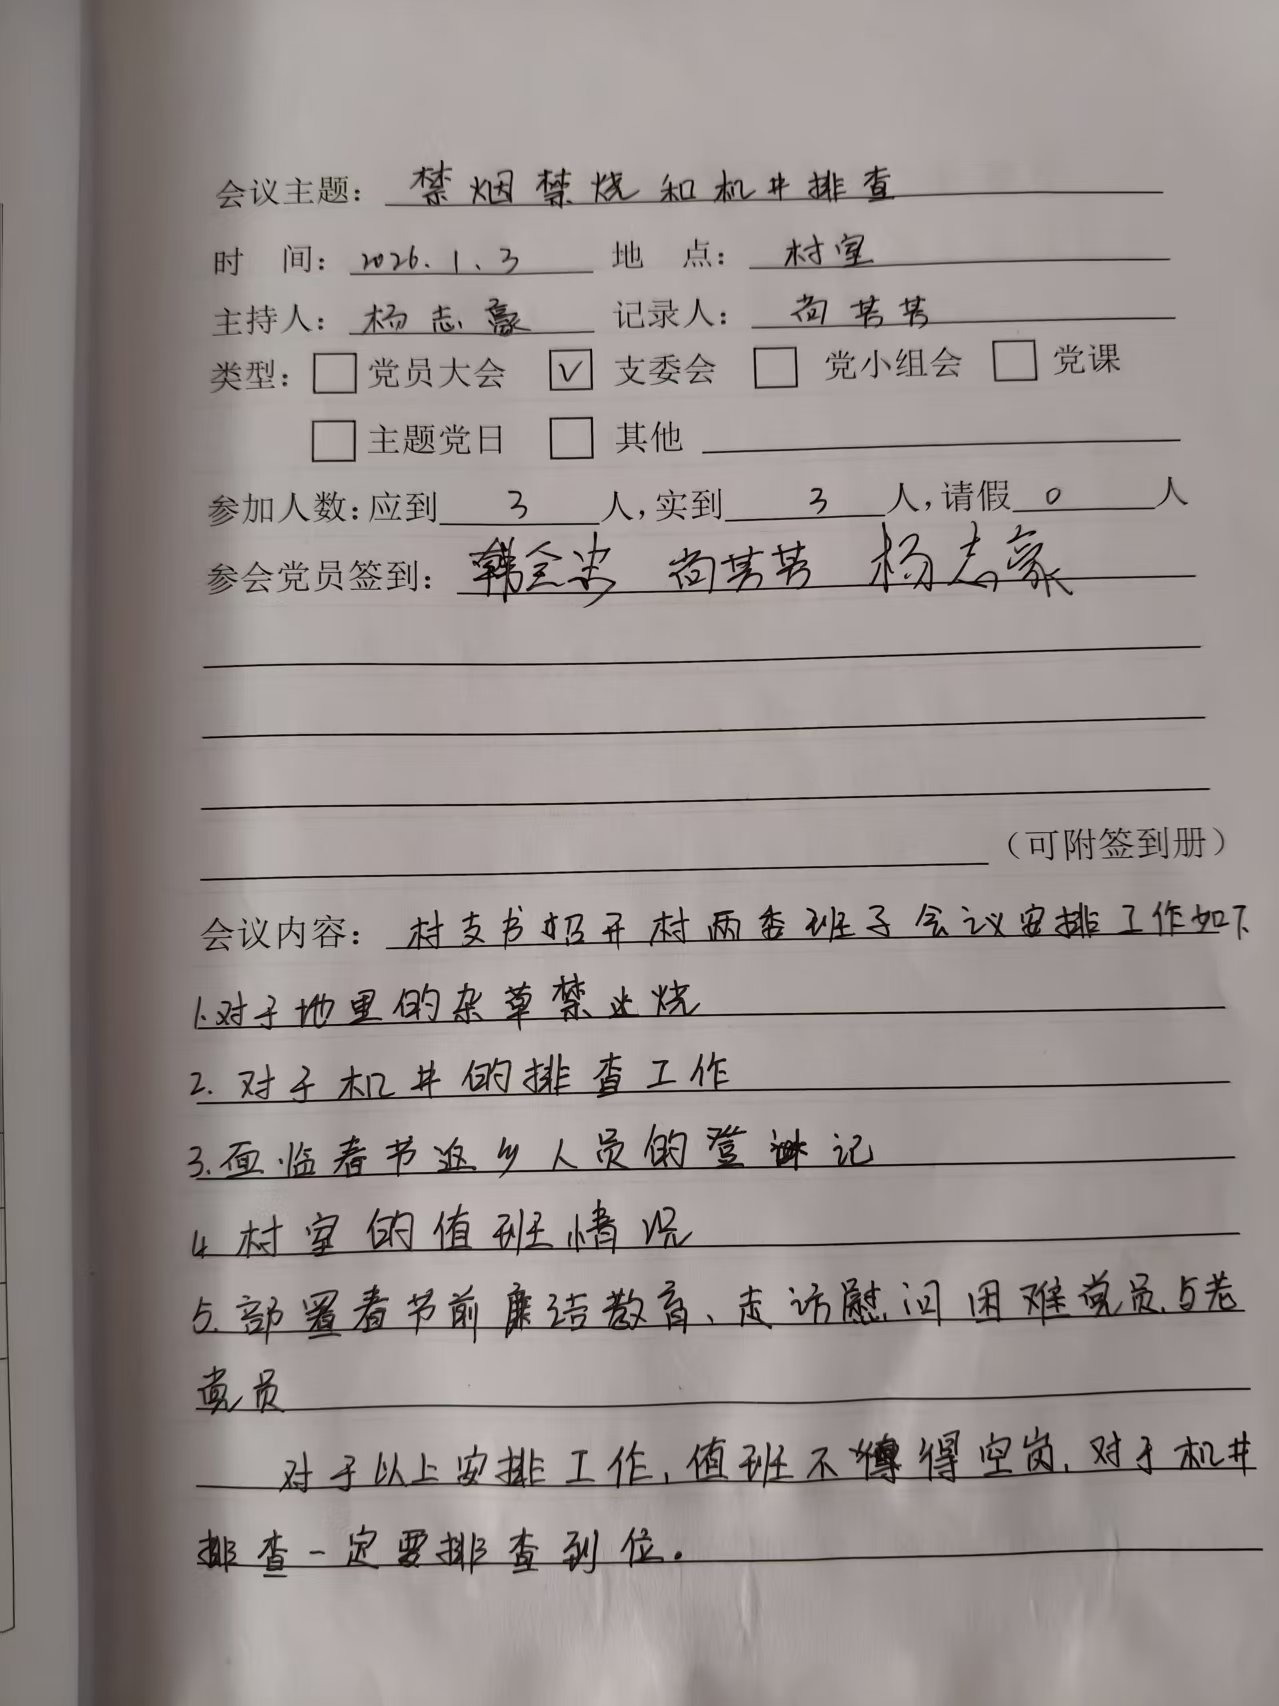 会议主题：禁烟禁烧和机井排查
时 间：2026.1.3 地 点：村室
主持人：杨志豪 记录人：尚芳芳
类型：□党员大会 ☑支委会 □党小组会 □党课
□主题党日 □其他
参加人数：应到3人，实到3人，请假0人
参会党员签到：韩全忠 尚芳芳 杨志豪
（可附签到册）
会议内容：村支书招开村两委班子会议安排工作如下
1.对于地里的杂草禁止烧
2.对于机井的排查工作
3.面临春节返乡人员的登记
4.村室的值班情况
5.部署春节前廉洁教育、走访慰问困难党员与老
党员
对于以上安排工作，值班不得空岗，对于机井
排查一定要排查到位。